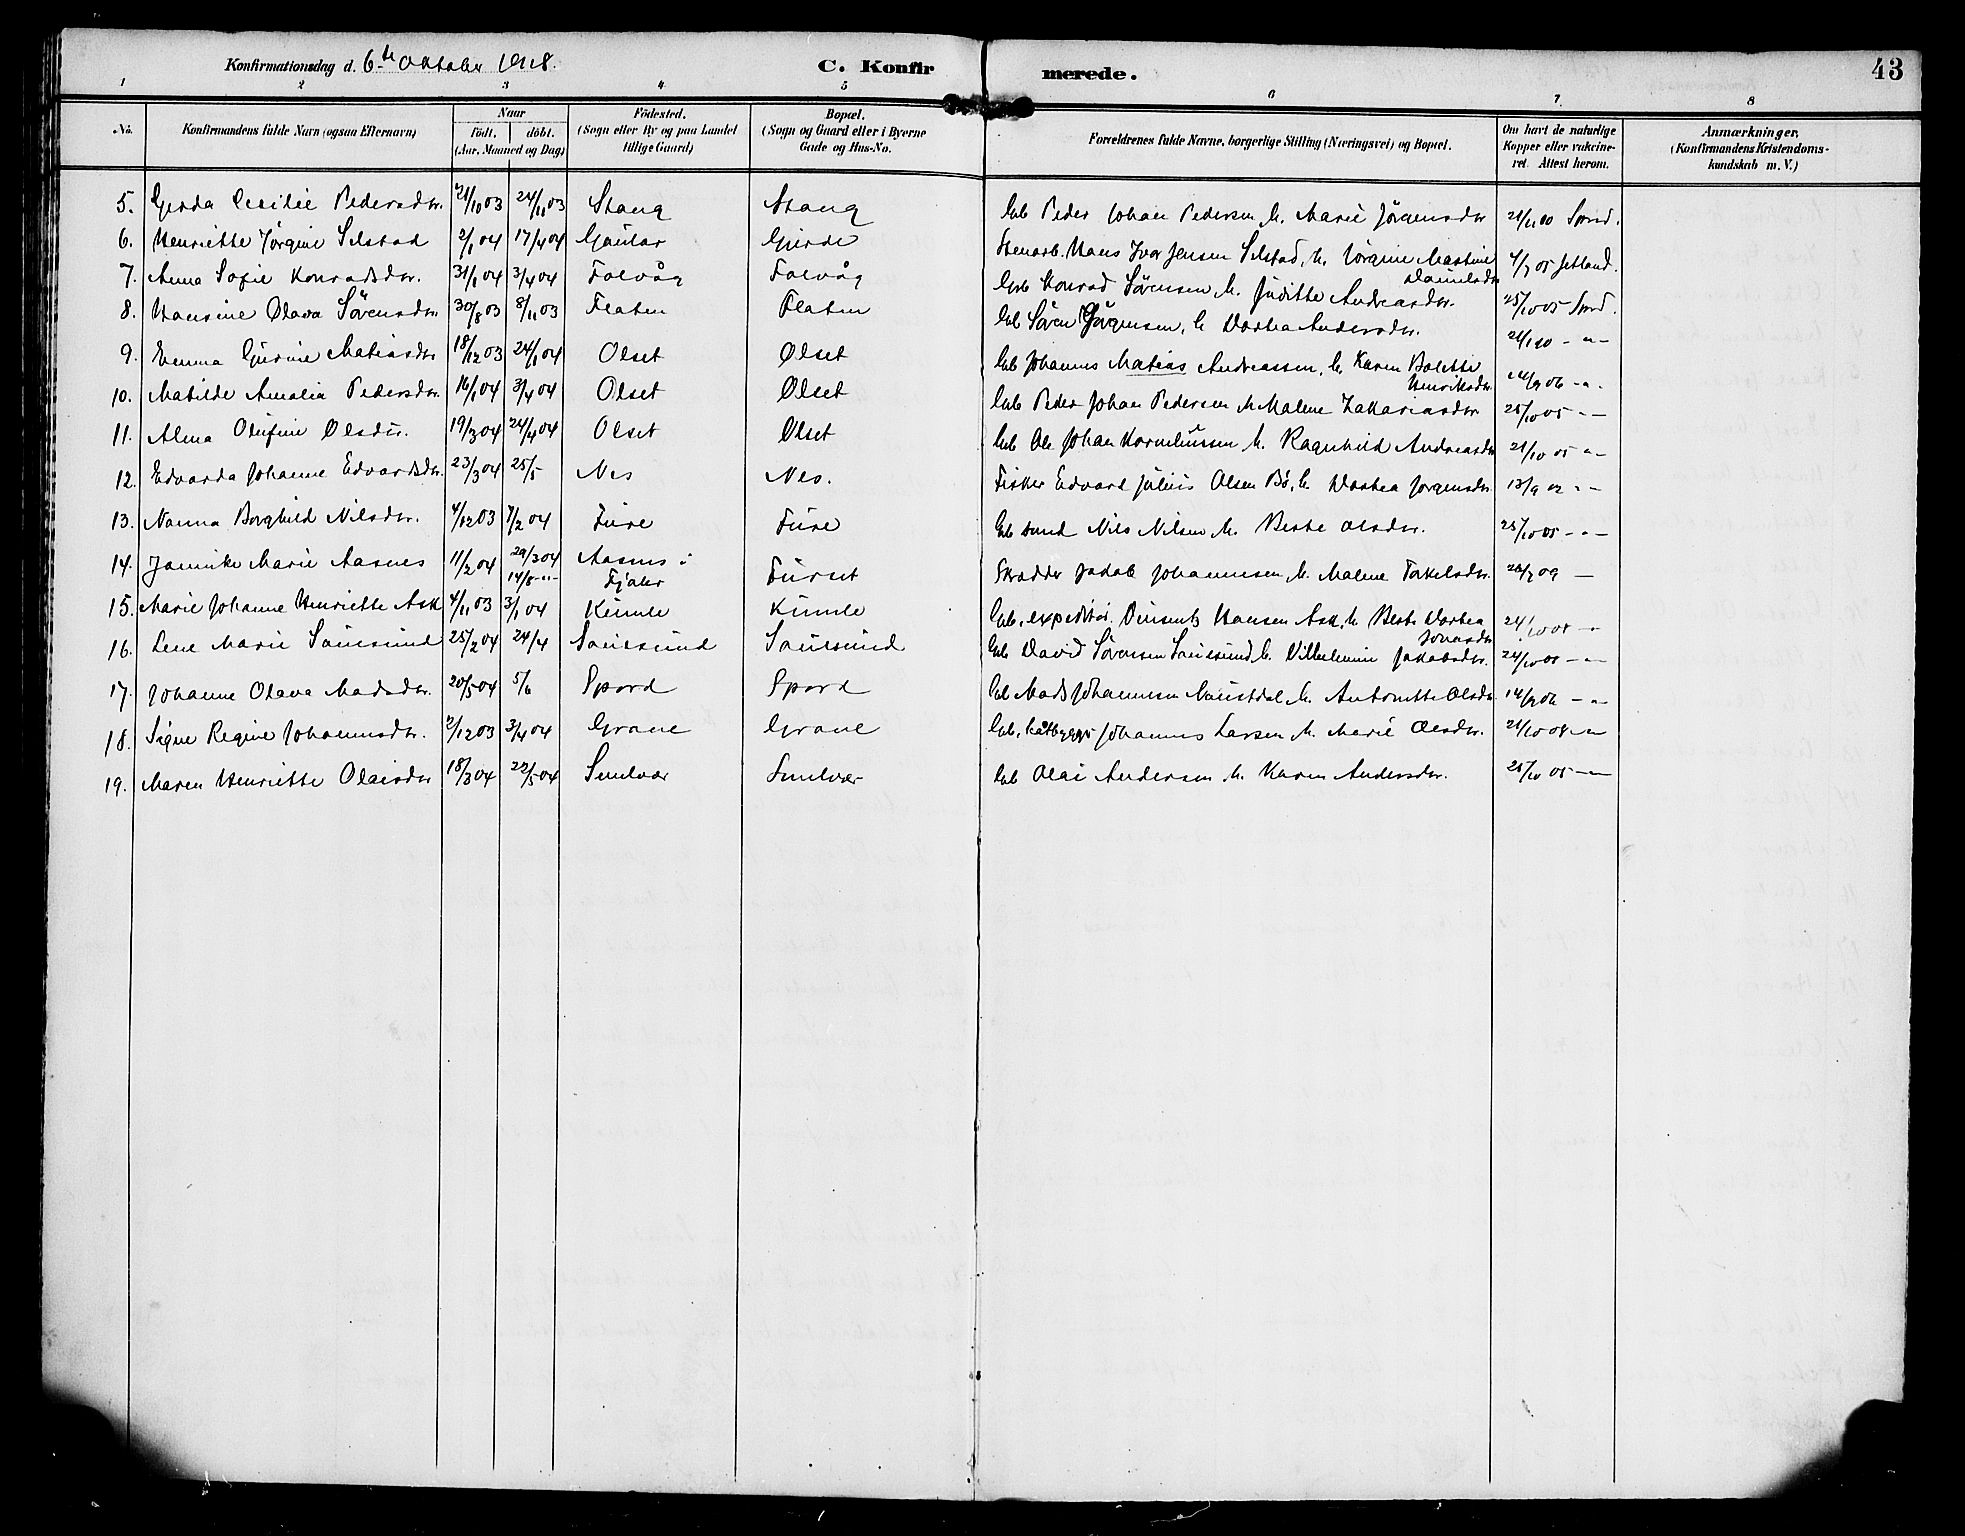 Konfirmationsdag d. 6te Oktober 1918. C. Konfirmerede. 43
1 2 3 4 5 6 7. 8
No. Konfirmandens fulde Navn (ogsaa Efternavn) Naar født. døbt. (Aar, Maaned og Dag) Födested. (Sogn eller By og paa Landet tillige Gaard) Bopæl. (Sogn og Gaard eller i Byerne Gade og Hus-No. Forældrenes fulde Navne, borgerlige Stilling (Næringsvei) og Bopæl. Om havt de naturlige Kopper eller vakcineret. Attest herom. Anmærkninger, (Konfirmandens Kristendomskundskab m. V.)
5. Gerda Cecilie Pedersdtr. 21/10 03 24/11 03 Stang Stang Gbr Peder Johan Pedersen h. Marie Jörgensdtr
6. Henriette Jörgine Selstad 2/1 04 17/4 04 Gaular Gjerde Stenarb. Hans Ivar Jensen Selstad, h. Jörgine Martine Danielsdtr 4/7 05 Jetland.
7. Anna Sofie Konradsdtr. 31/1 04 3/4 04 Folvåg Folvåg Gbr Konrad Sörensen h. Juditte Andreasdtr. 25/10 05
8. Hansine Olava Sörensdtr 30/8 03 8/11 03 Flaten Flaten Gbr Sören Jörgensen, h. Dortea Andersdtr.
9. Emma Gurine Matiasdtr 18/12 03 24/1 04 Olset Ølset Gbr Johannes Matias Andreassen, h. Karen Bolette Henriksdtr
10. Matilde Amalia Pedersdtr. 16/1 04 3/4 04 Olset Ølset Gbr Peder Johan Pedersen h. Malene Zakariasdtr 25/10 05 -"-
11. Alma Olufine Olsdtr. 19/3 04 24/4 04 Olset Ølset Gbr Ole Johan Korneliussen h. Ragnhild Andreasdtr 21/10 05 -"-
12. Edvarda Johanne Edvardsdtr. 23/3 04 25/5 Nes Nes. Fisker Edvard Julius Olsen Bö, h. Dortea Jorgensdtr 13/9 12 -"-
13. Nanna Borghild Nilsdtr. 4/12 03 7/2 04 Fure Fure Nils Nilsen h. Berte Olsdtr. 25/10 05 -"-
14. Jannike Marie Aasnes 11/2 04 29/3 04 14/8 -"- Aasnes i Fjaler Furset Skrædder Jakob Johannesen, h. Malene Torkelsdtr.
15. Marie Johanne Henriette Ask 4/11 03 3/1 04 Kumle Kumle Gbr, expeditör. Vinsents Hansen Ask, h. Berte Dortea Jonasdtr 24/10 05 -"-
16. Lene Marie Sauesund 25/2 04 24/4 Sauesund Sauesund Gbr David Sörensen Sauesund, h. Vilhelmine Jakobsdtr. 24/10 05 -"-
17. Johanne Olava Madsdtr. 20/5 04 5/6 Spord Spord Gbr Mads Johannesen Naustdal h. Antonette Olsdtr 14/9 06 -"-
18. Signe Regine Johannesdtr. 2/12 03 3/4 04 Grane Grane Gbr, båtbygger Johannes Larsen h. Marie Olsdtr. 21/10 05 -"-
19. Maren Henriette Olaisdtr 18/3 04 22/5 04 Smelvær Smelvær Gbr Olai Andersen h. Karen Andersdtr. 25/10 05 -"-